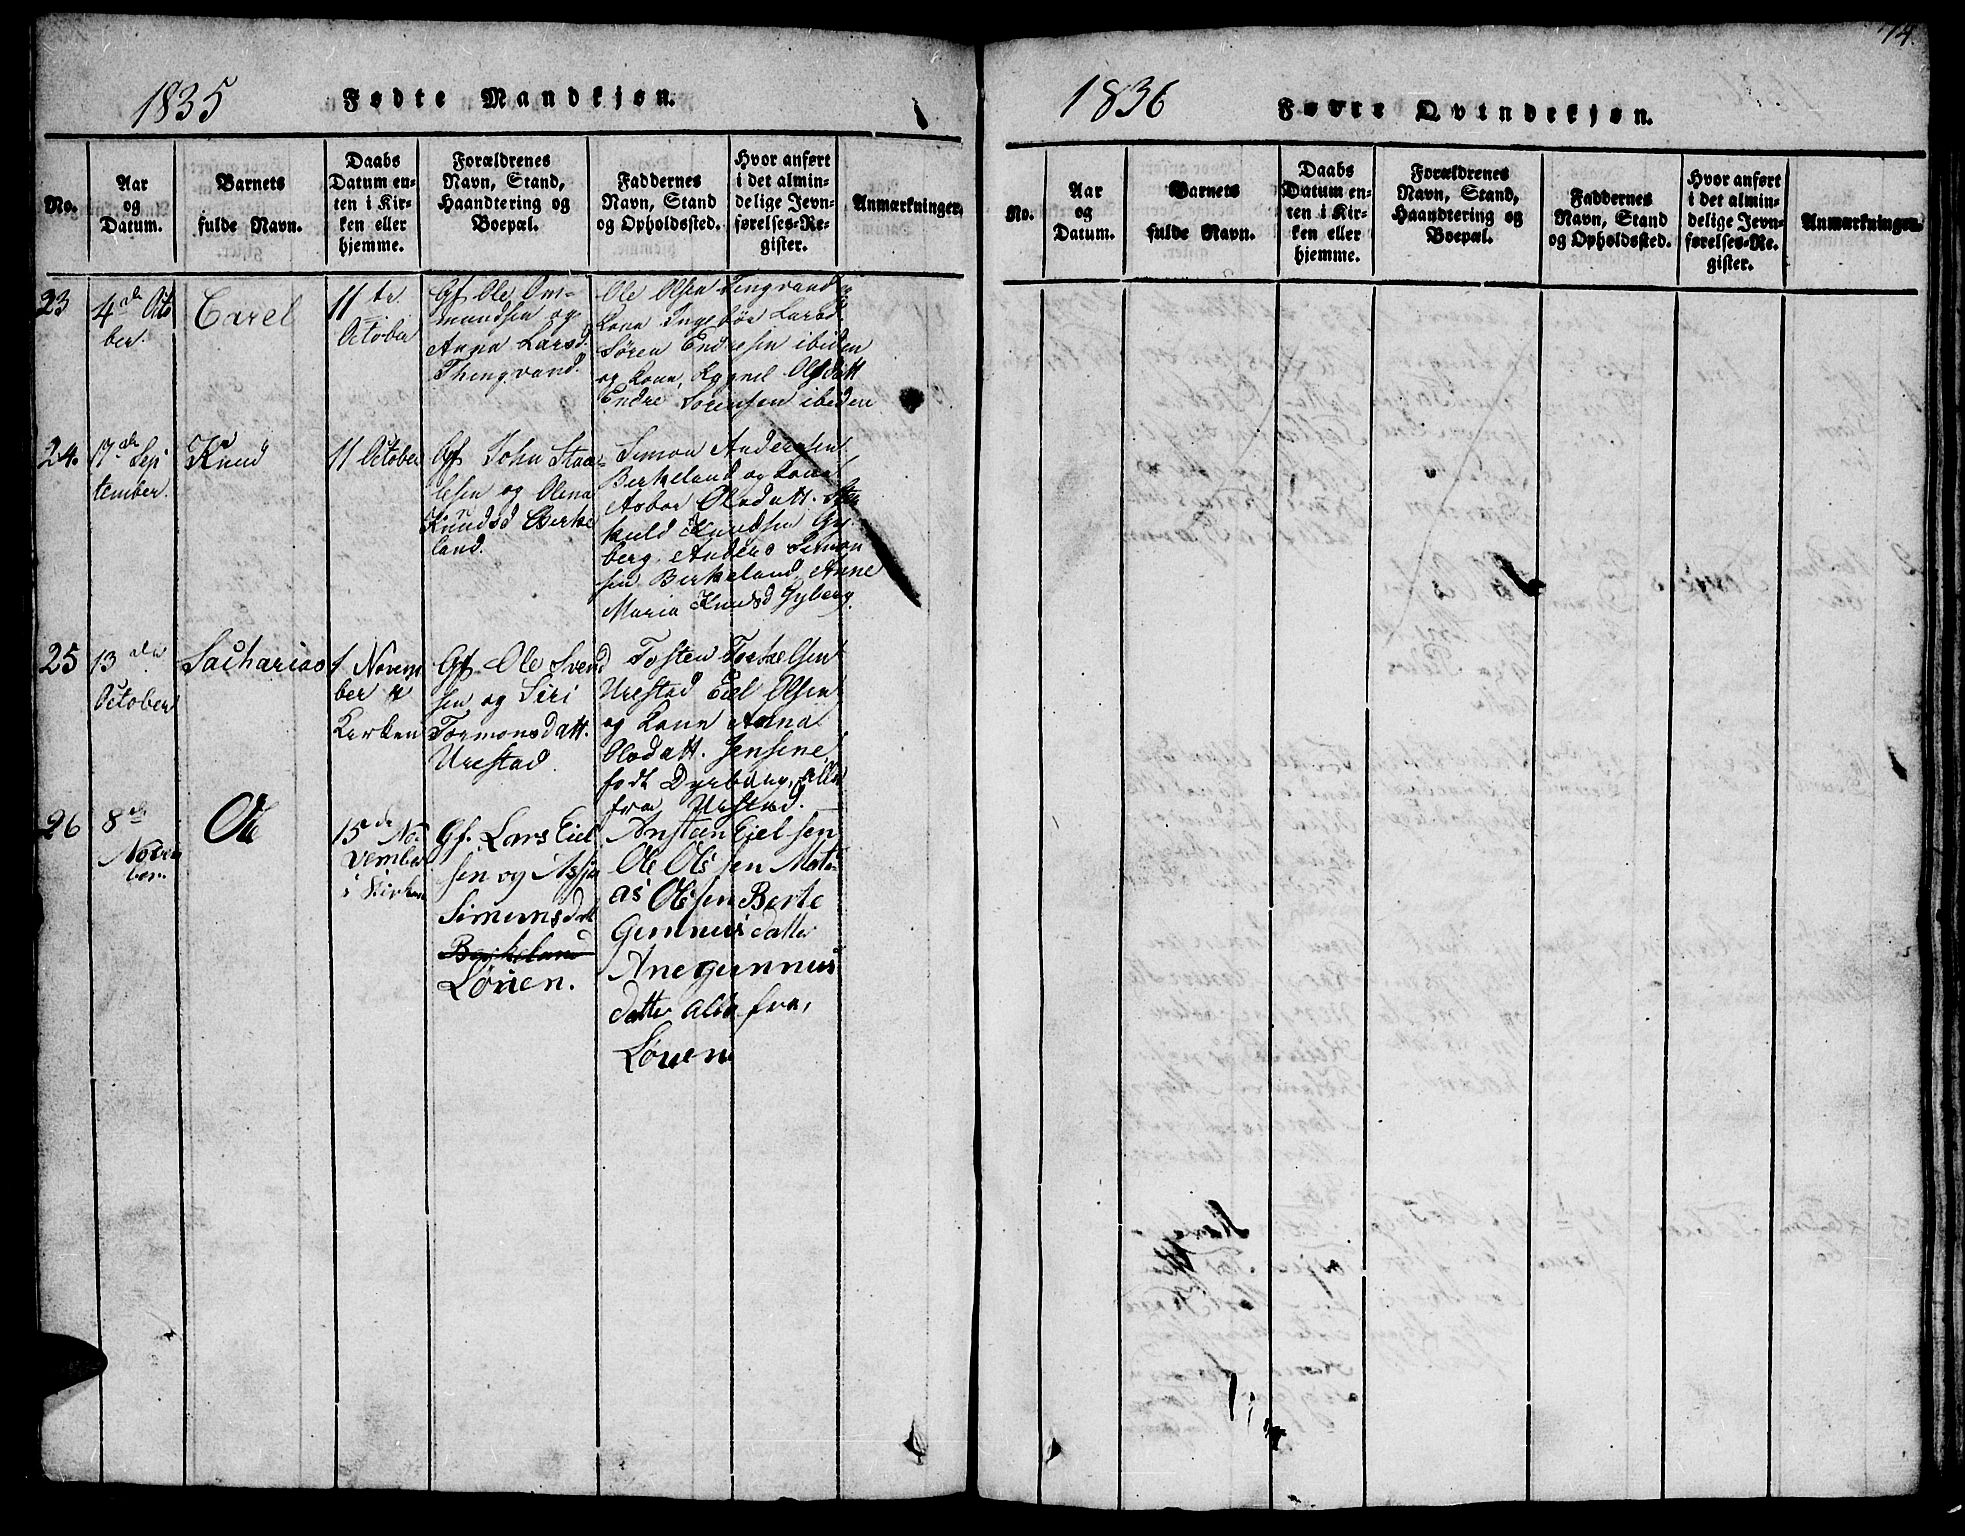 1835
Fødte Mandkjøn.
No.
Aar
og
Datum.
Barnets
fulde Navn.
Daabs
Datum en-
ten i Kir-
ken eller
hjemme.
Forældrenes
Navn, Stand,
Haandtering og
Boepæl.
Faddernes
Navn, Stand
og Opholdssted.
Hvor anført
i det almin-
delige Jevn-
førelses-Re-
gister.
Anmærkninger.
23
4de Octo
ber.
Carel
11te
October
Gf Ole Om-
mundsen og
Anna Larsd.
Thengvand.
Ole Olsen Tengvand
Kone Ingebør Larsd.
Søren Endresen ibiden
og Kone, Olsdatt
Endre Sørensen ibiden
24.
17de Sep
tember.
Knud
11 October
Gf John Staa-
lesen og Olena
Knudsd Birke
land.
Simon Andersen
Birkeland og Kone
Asbor Olsdatt.
Knudsen Gy-
berg. Anders Simon
sen Birkeland, Anne
Maria Knudsd Gyberg.
25
13de
October
Sacharias
1 Novem
ber i
Kirken
Gf Ole Svend
sen og Siri
Tormonsdatt.
Urestad.
Tosten Torkelsen
Urestad Eiel Olsen
og Kone Anna
Olsdatt. Jensine
født Dyrbing, alle
fra Urstad.
26
8de
Novem
ber.
Ole
15de No
vember
i Kirken
Gf. Lars Eiel
sen og
Simensdatt
Berkeland
Løuen.
Ansten Eielsen
Ole Olssen Mati
as Olssen Berte
Gunnusdatter
Anegunnus
datter alle fra,
Løuen
74.
1836
Fødte Qvindekjøn.
No.
Aar
og
Datum.
Barnets
fulde Navn.
Daabs
Datum en-
ten i Kir-
ken eller
hjemme.
Forældrenes
Navn, Stand,
Haandtering og
Boepæl.
Faddernes
Navn, Stand
og Opholdssted.
Hvor anført
i det almin-
delige Jevn-
førelses-Re-
gister.
Anmærkninger.